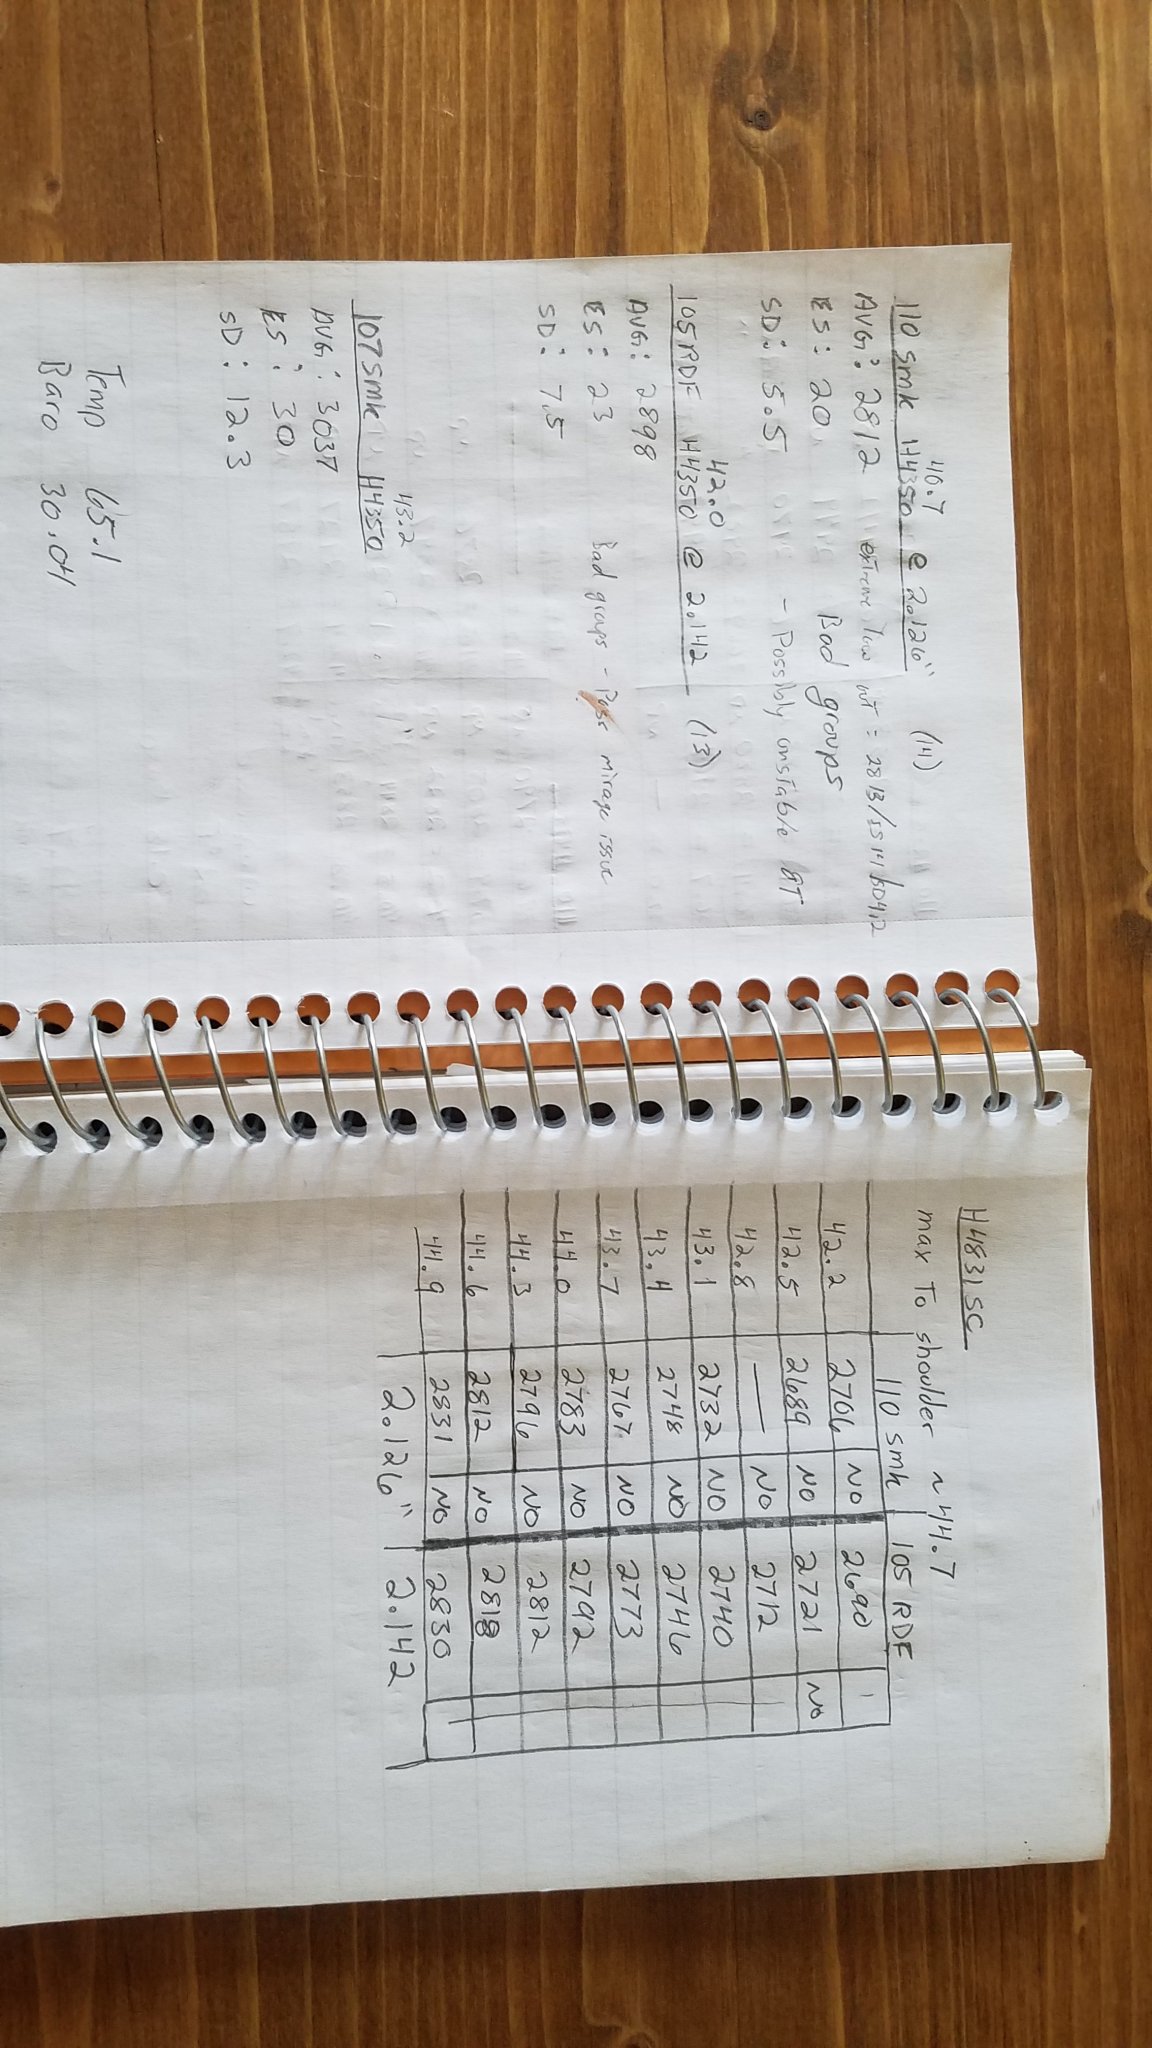 110 SMK H4350 @ 2.126" (14)
40.7
AVG: 2812
ES: 20 Bad groups
SD: 5.5 - Possibly unstable BT
105 RDF H4350 @ 2.142 (13)
42.0
AVG: 2898
ES: 23 Bad groups - Poss mirage issue
SD: 7.5
107 SMK H4350
43.2
AVG: 3037
ES: 30
SD: 12.3
Temp 65.1
Baro 30.04
H4831SC
max To shoulder ~44.7
110 smk 105 RDF
42.2 2706 NO 2690
42.5 2689 NO 2721 NO
42.8 — NO 2712
43.1 2732 NO 2740
43.4 2748 NO 2746
43.7 2767 NO 2773
44.0 2783 NO 2792
44.3 2796 NO 2812
44.6 2812 NO 2818
44.9 2831 NO 2830
2.126" 2.142